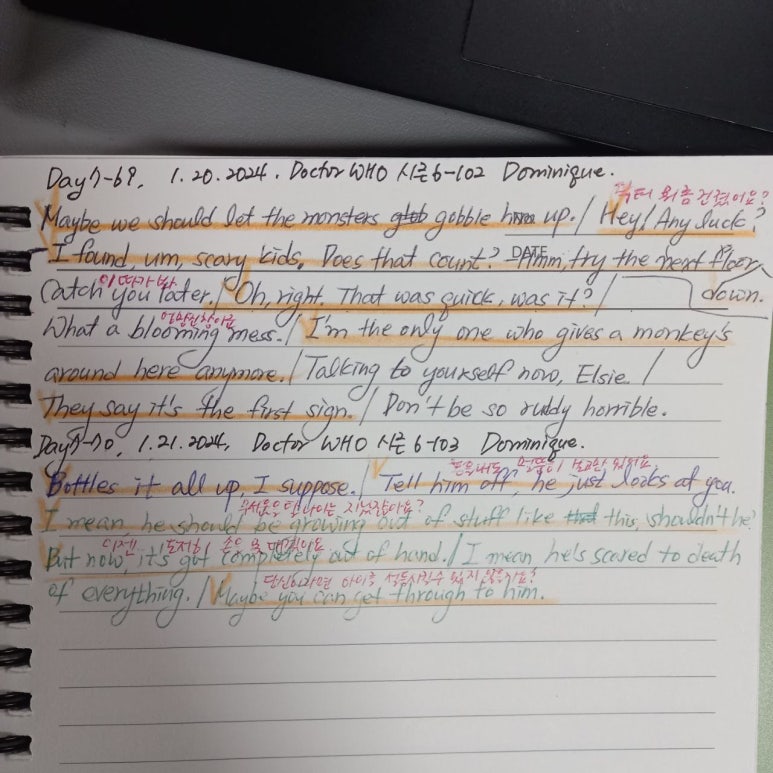 Day7-69, 1.20.2024. Doctor WHO 시즌6-102 Dominique.
닥터 뭐 좀 건졌어요?
Maybe we should let the monsters gobble him up. / Hey! Any luck?
I found, um, scary kids. Does that count? DATE Hmm, try the next floor
이따가 봐
Catch you later. / Oh, right. That was quick, was it? / down.
엉망진창이군
What a blooming mess. / I'm the only one who gives a monkey's
around here anymore. / Talking to yourself now, Elsie. /
They say it's the first sign. / Don't be so ruddy horrible.
Day7-70, 1.21.2024, Doctor WHO 시즌6-103 Dominique.
혼을내도 보고만 있어요
Bottles it all up, I suppose. / Tell him off, he just looks at you.
나이는 지났잖아요?
I mean he should be growing out of stuff like that this, shouldn't he?
이젠 도저히 손을 못
But now, it's got completely out of hand. / I mean he's scared to death
당신이라면 아이를
of everything. / Maybe you can get through to him.